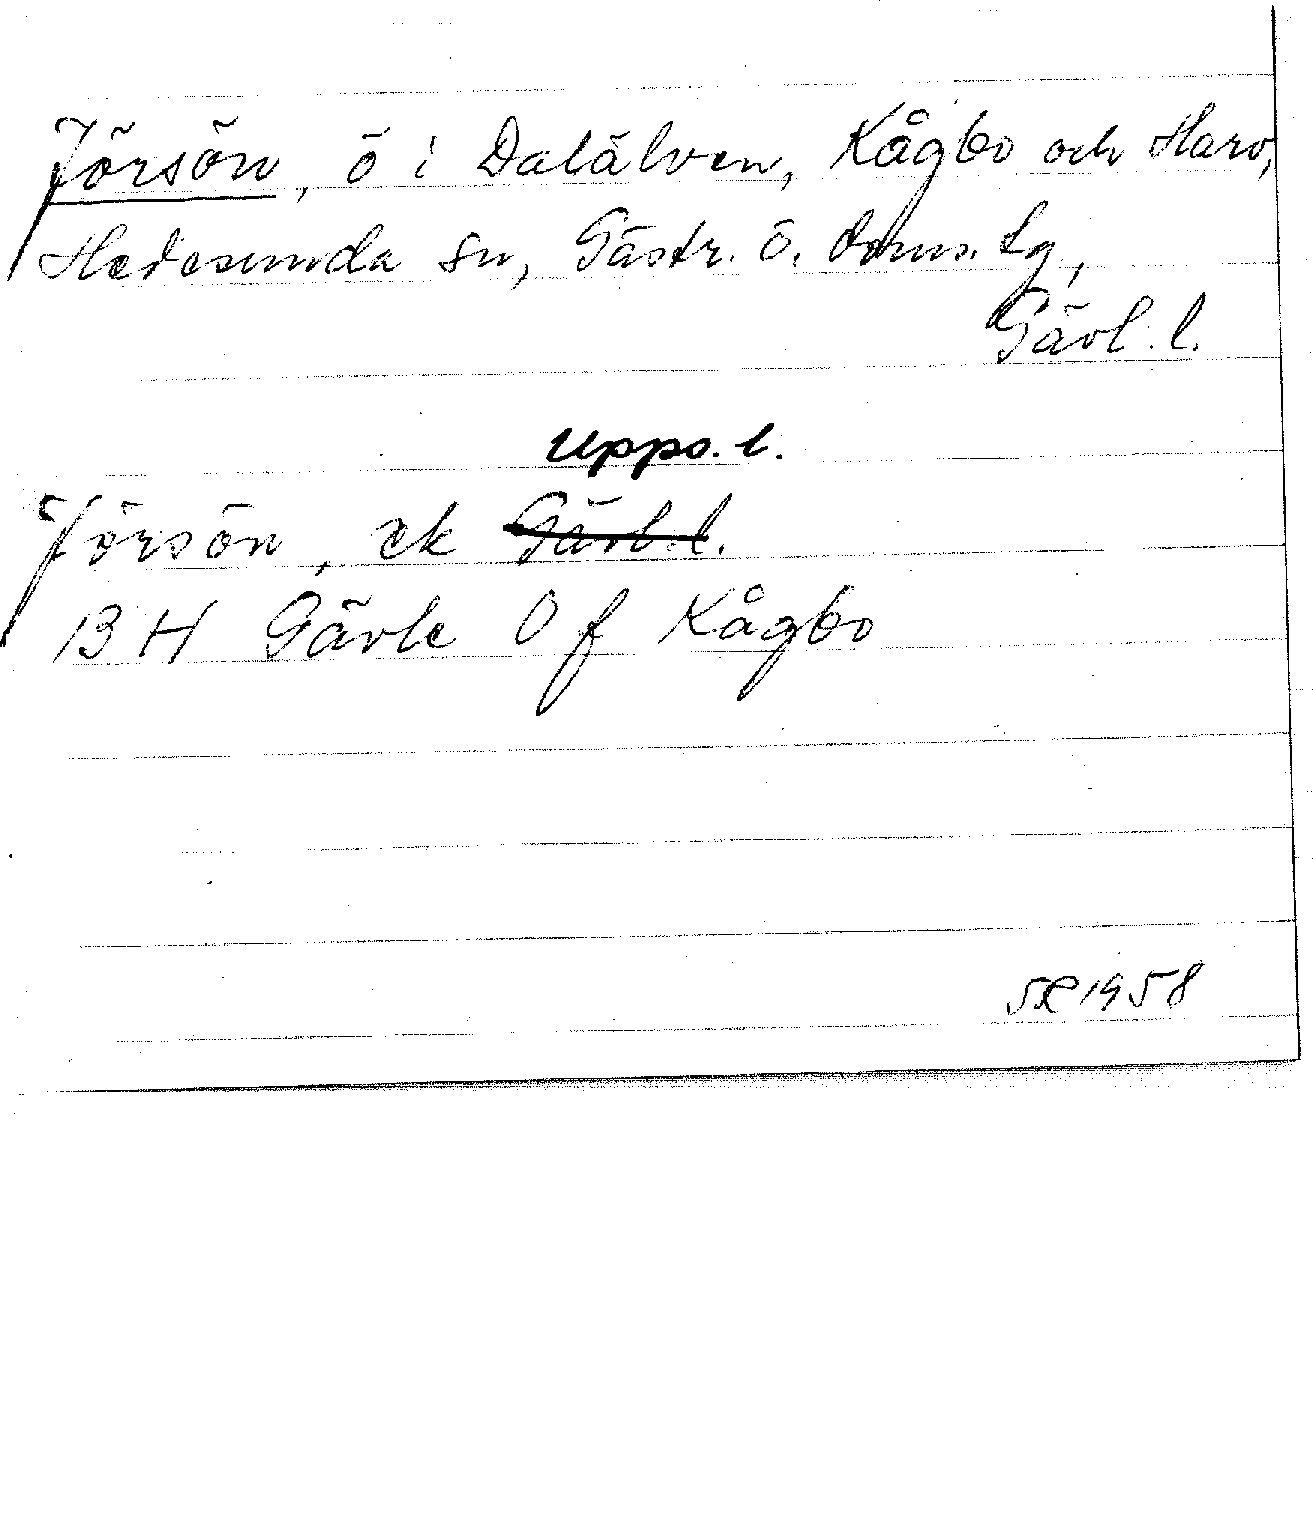 Jörsön, ö i Dalälven, Kågbo och Harv,
Hedesunda sn, Gästr. ö. doms. tg,
Gävl. l.
Upps. l.
Jörsön, ek Gävl. l.
13 H Gävle Of Kågbo
1958